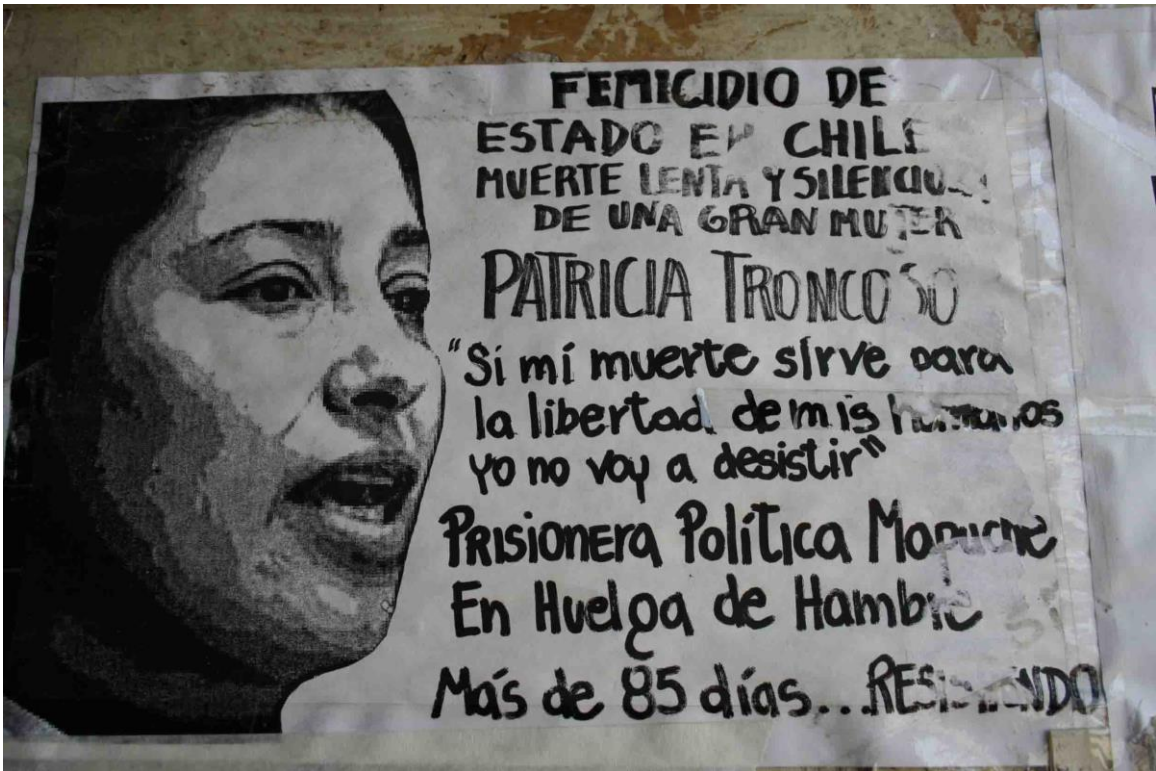 FEMICIDIO DE
ESTADO EN CHILE
MUERTE LENTA Y SILENCIOSA
DE UNA GRAN MUJER
PATRICIA TRONCOSO
"Si mí muerte sirve para
la libertad de mis hermanos
yo no voy a desistir"
PRISIONERA Política Mapuche
En Huelga de Hambre
Más de 85 días... RESISTIENDO